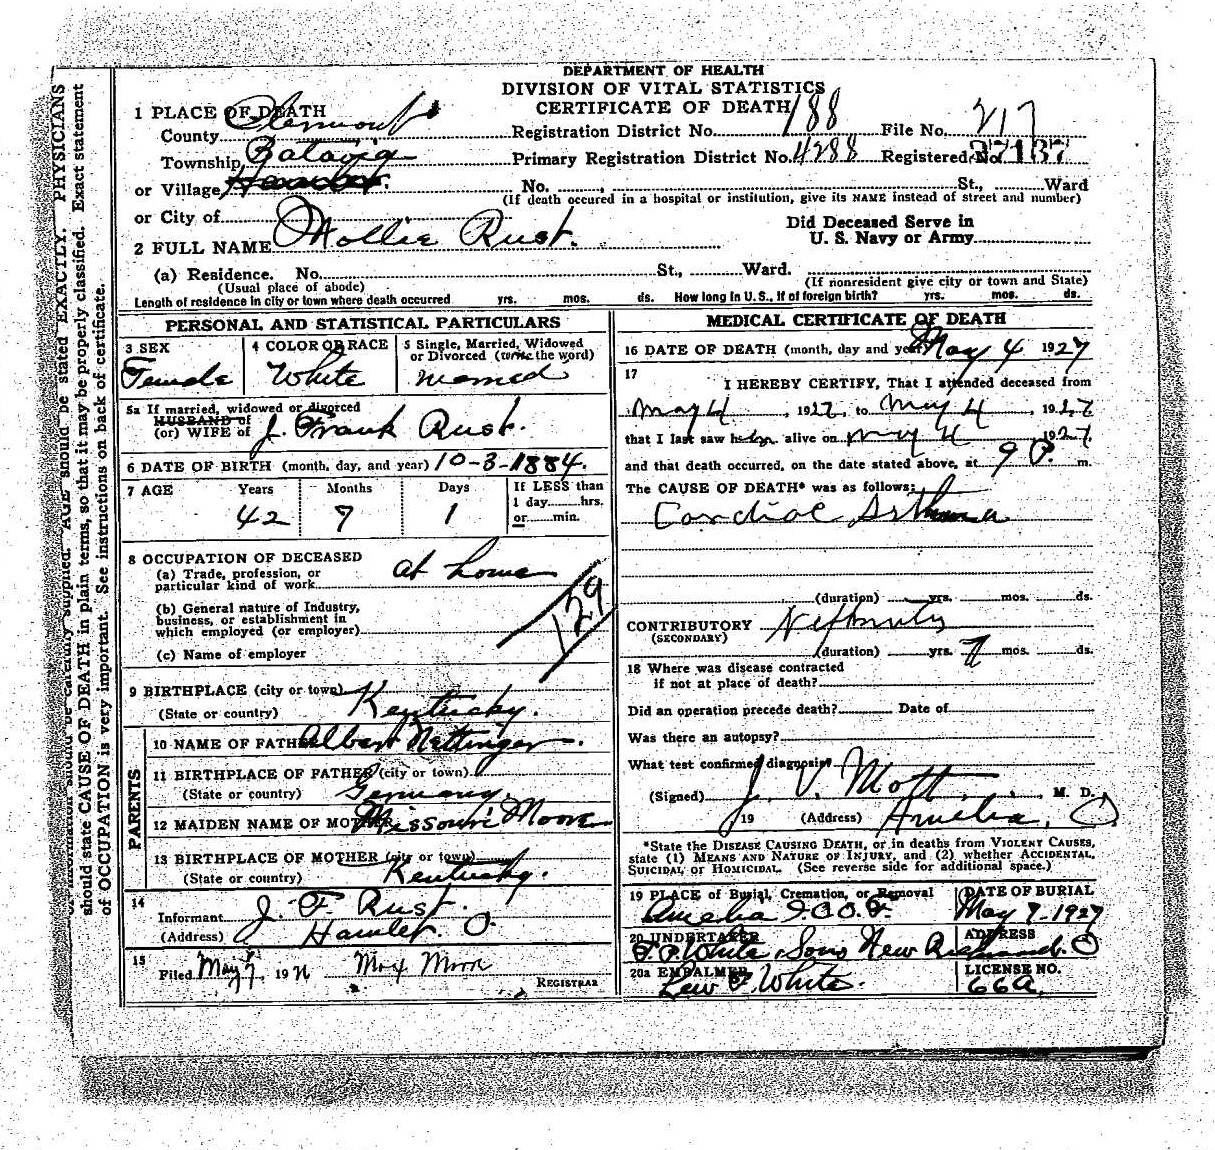 DEPARTMENT OF HEALTH
DIVISION OF VITAL STATISTICS
CERTIFICATE OF DEATH
1 PLACE OF DEATH
County Clermont Registration District No. 188 File No. 217
Township Batavia Primary Registration District No. 4288 Registered No. 27137
or Village No. , St., Ward
(If death occured in a hospital or institution, give its NAME instead of street and number)
or City of
Did Deceased Serve in
U. S. Navy or Army
2 FULL NAME Mollie Rust.
(a) Residence. No. St., Ward.
(Usual place of abode) (If nonresident give city or town and State)
Length of residence in city or town where death occurred yrs. mos. ds. How long in U.S., if of foreign birth? yrs. mos. ds.
PERSONAL AND STATISTICAL PARTICULARS
3 SEX
Female
4 COLOR OR RACE
White
5 Single, Married, Widowed
or Divorced (write the word)
married
5a If married, widowed or divorced
HUSBAND of
(or) WIFE of J. Frank Rust.
6 DATE OF BIRTH (month, day, and year) 10-3-1884.
7 AGE Years Months Days If LESS than
1 day hrs.
or min.
42 7 1
8 OCCUPATION OF DECEASED
(a) Trade, profession, or
particular kind of work at home
(b) General nature of Industry,
business, or establishment in
which employed (or employer)
129
(c) Name of employer
9 BIRTHPLACE (city or town)
(State or country) Kentucky.
PARENTS
10 NAME OF FATHER Albert Nettinger.
11 BIRTHPLACE OF FATHER (city or town)
(State or country) Germany.
12 MAIDEN NAME OF MOTHER Missouri Moore
13 BIRTHPLACE OF MOTHER (city or town)
(State or country) Kentucky.
14
Informant J. F. Rust.
(Address) Hamlet. O.
15
Filed May 7, 19 Max Moon
REGISTRAR
MEDICAL CERTIFICATE OF DEATH
16 DATE OF DEATH (month, day and year) May 4 1927
17
I HEREBY CERTIFY, That I attended deceased from
May 4, 1927, to May 4, 1927
that I last saw her alive on May 4 1927
and that death occurred, on the date stated above, at 9 P. m.
The CAUSE OF DEATH* was as follows:
Cardiac Asthma
(duration) yrs. mos. ds.
CONTRIBUTORY Nephritis
(SECONDARY)
(duration) yrs. 7 mos. ds.
18 Where was disease contracted
if not at place of death?
Did an operation precede death? Date of
Was there an autopsy?
What test confirmed diagnosis?
(Signed) J. V. Mott, M. D.
19 (Address) Amelia, O
*State the DISEASE CAUSING DEATH, or in deaths from VIOLENT CAUSES,
state (1) MEANS AND NATURE OF INJURY, and (2) whether ACCIDENTAL,
SUICIDAL or HOMICIDAL. (See reverse side for additional space.)
19 PLACE of Burial, Cremation, or Removal
Amelia I.O.O.F.
DATE OF BURIAL
May 7-1927
20 UNDERTAKER ADDRESS
F. P. White & Sons New Richmond. O
20a EMBALMER
Lew F. White.
LICENSE NO.
66A.
should be carefully supplied. AGE should be stated EXACTLY. PHYSICIANS
should state CAUSE OF DEATH in plain terms, so that it may be properly classified. Exact statement
of OCCUPATION is very important. See instructions on back of certificate.